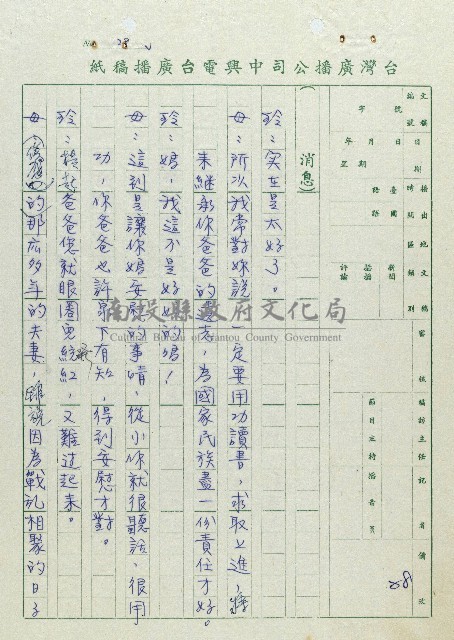 28
台灣廣播公司中興電台廣播稿紙
文稿編號
字
號
年
月
日
播出時間
年
月
日
星期
地區
臺語
國語
文稿類別
新聞
評論
審核
編訪主任
記者
備次
28
節目主持
播音員
(消息)
玲：实在是太好了。
母：所以我常對妳說，一定要用功讀書，求取上進，將
來継承你爸爸的遺志，為國家民族盡一份責任才好。
玲：媽，我這不是好好的嗎！
母：這到是讓你媽安慰的事情，從小你就很聽話，很用
功，你爸爸也許地下有知，得到安慰才對。
玲：提起爸爸您就眼圈兒紅，又難过起來。
母：(感慨的)那広多年的夫妻，雖说因為戰乱相聚的日子
南投縣政府文化局
Cultural Bureau of Nantou County Government